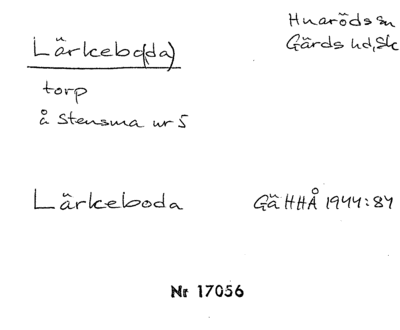 Lärkebo(da)
Huaröds sn
Gärds hd, Sk
torp
å Stensma nr 5
Lärkeboda
Gä HHÅ 1944:84
Nr 17056